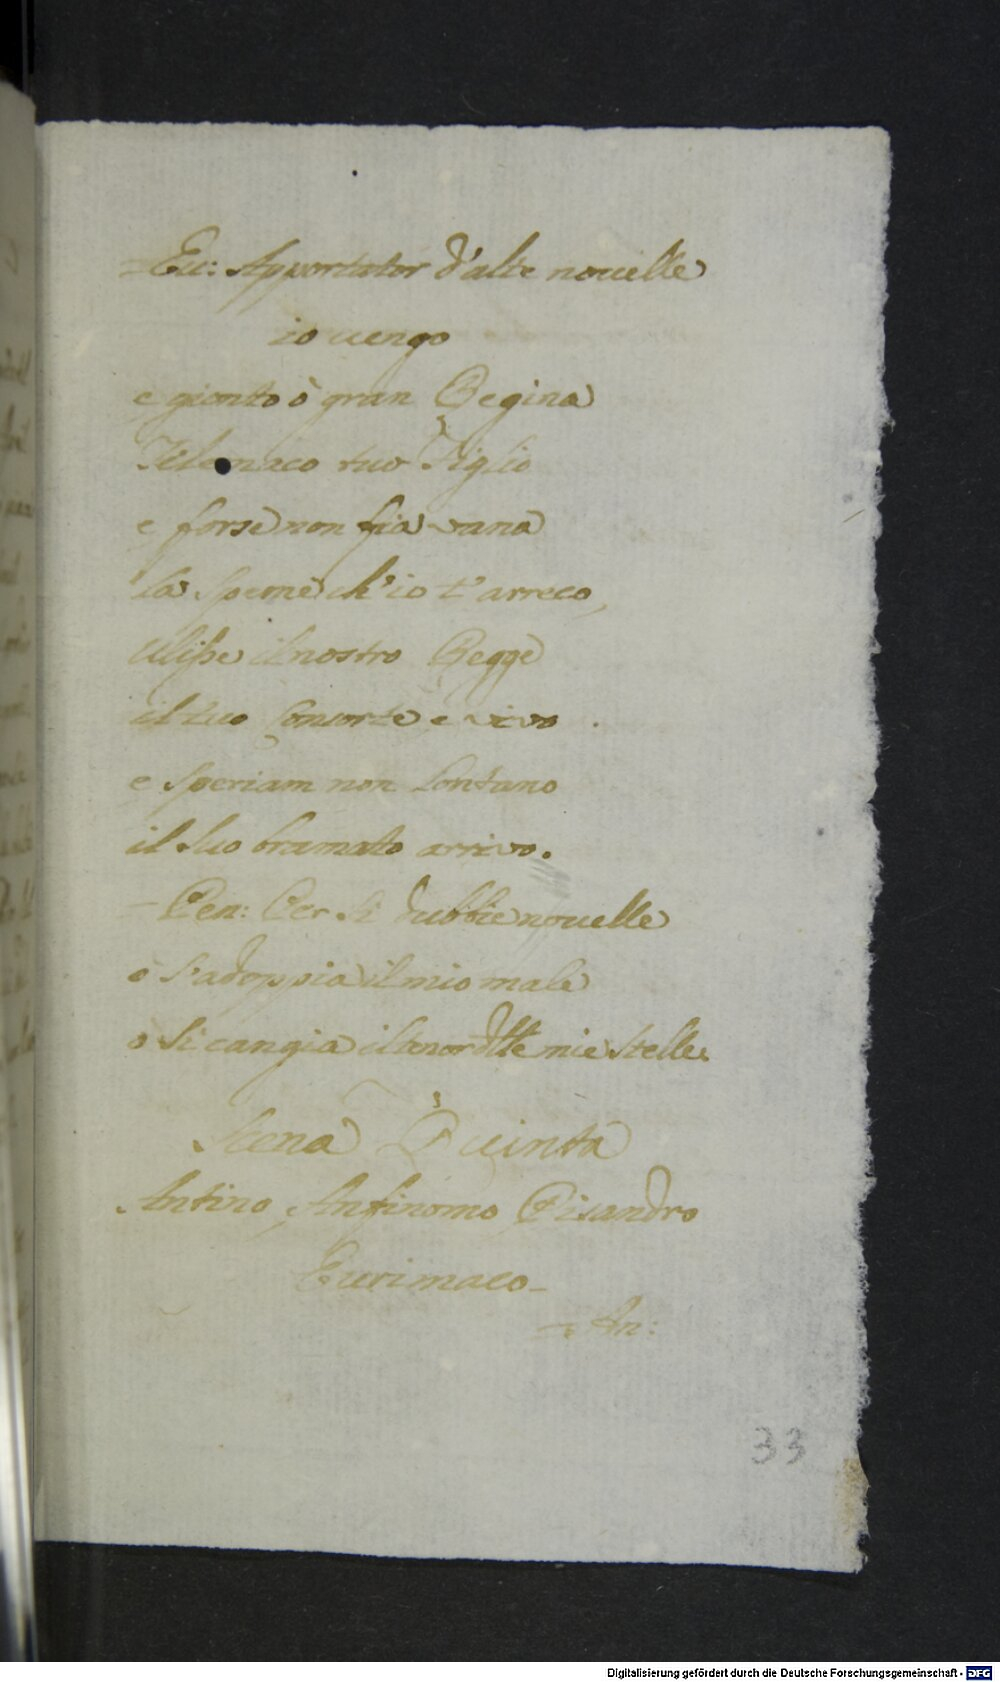 Eu: Apportator d'alte nouelle
io uengo
e gionto ò gran Regina
Telemaco tuo Figlio
e forse non fia vana
la speme ch'io t'arreco,
Ulisse il nostro Regge
il tuo Consorte e vivo
e speriam non lontano
il suo bramato arrivo.
Pen: Per si dubbie nouelle
o s'adoppia il mio male
o si cangia il tenor delle mie stelle
Scena Quinta
Antino, Anfinomo, Pisandro
Eurimaco
An:
33
Digitalisierung gefördert durch die Deutsche Forschungsgemeinschaft - DFG